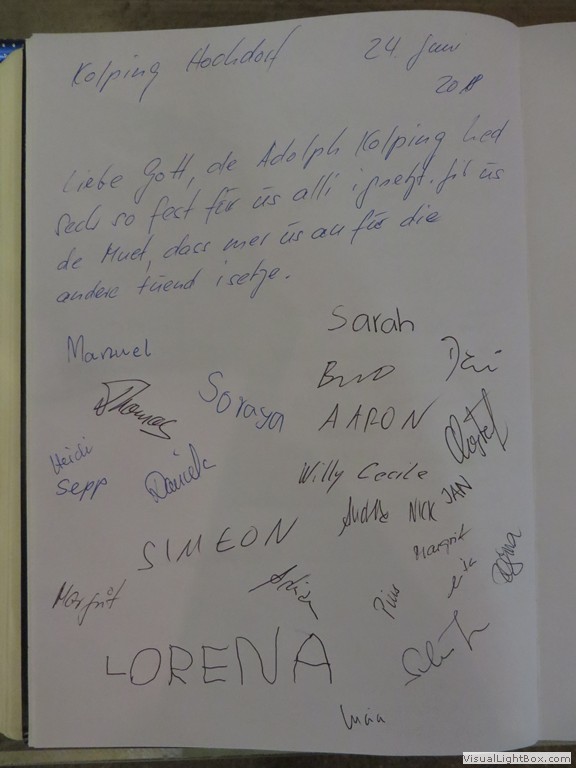 Kolping Hochdorf 24. Juni
2018
Liebe Gott, de Adolph Kolping hed
sech so fest für üs alli igsetzt. Gib üs
de Muet, dass mer üs au für die
andere tüend isetze.
Sarah
Manuel
Bruno
Thomas Soraya
AARON
Heidi
Sepp Daniela
Willy Cecile
JAN
NICK
SIMEON
Margrit
Margrit
Pius
LORENA
Lucia
VisualLightBox.com